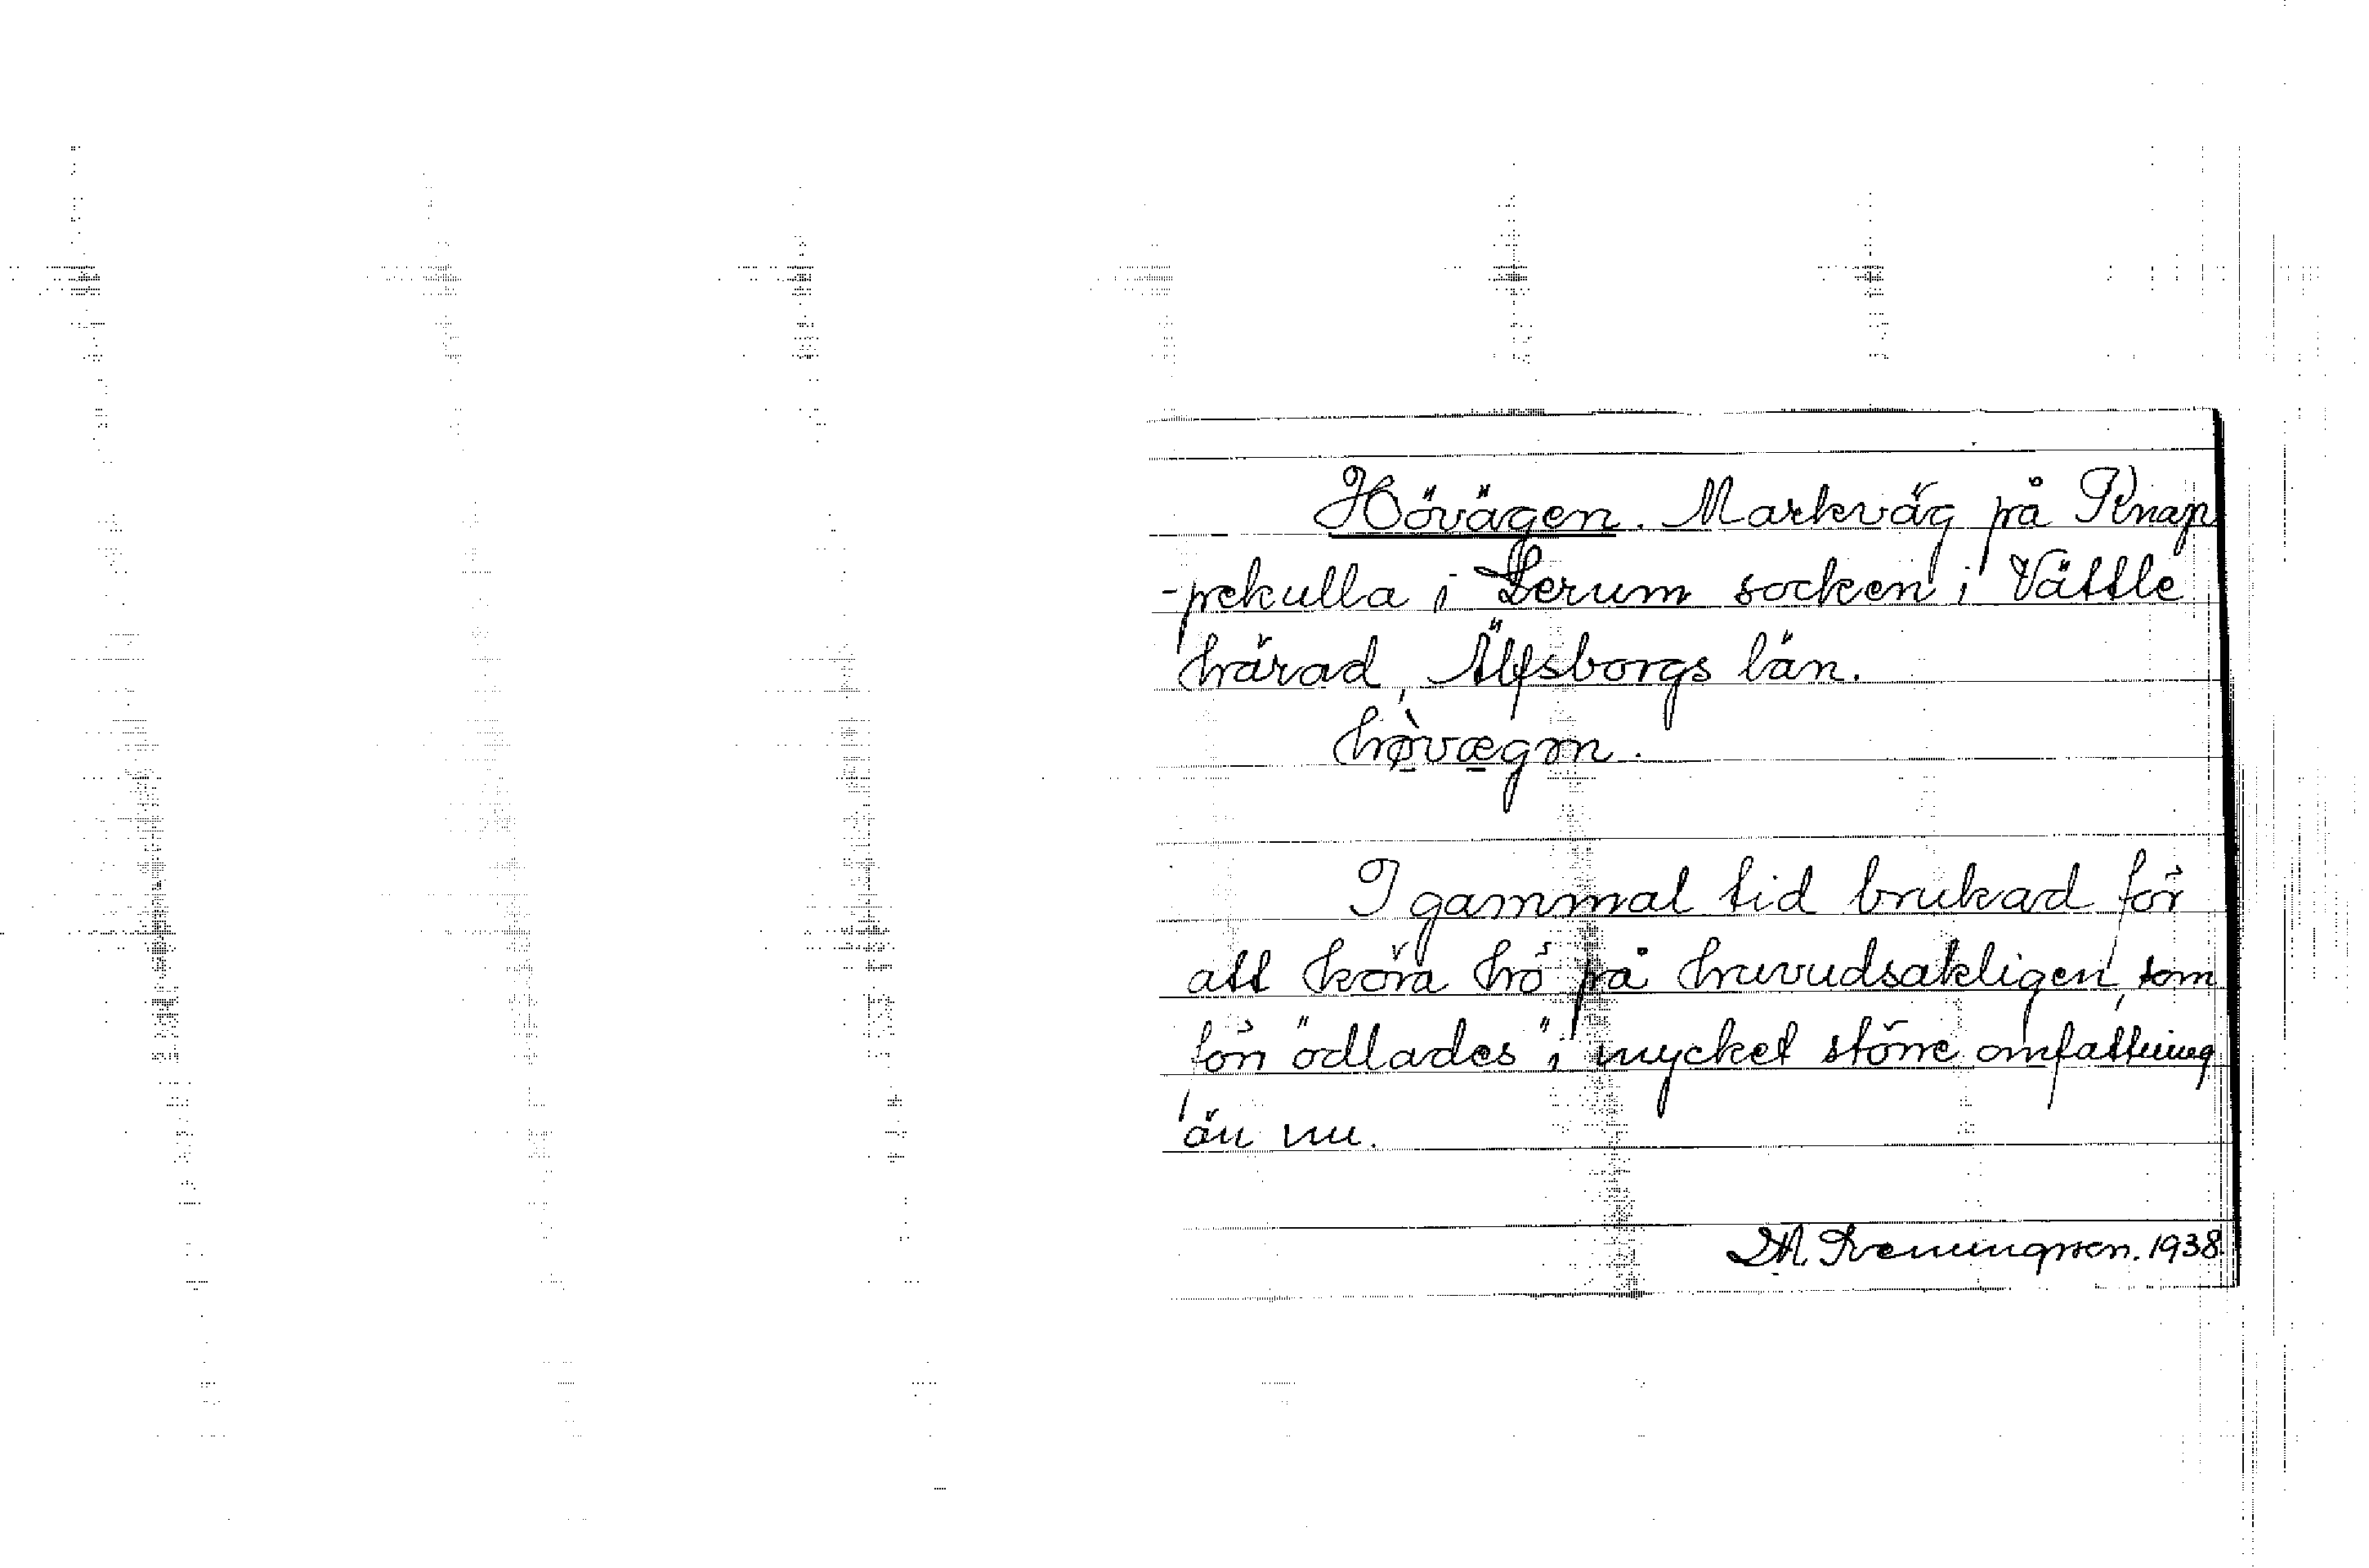 Hövägen. Markväg på Knap
-pekulla i Lerum socken i Vättle
härad, Älfsborgs län.
hø̀vægm.
I gammal tid brukad för
att köra hö på huvudsakligen, som
förr "odlades" i mycket större omfattning
än nu.
1938.